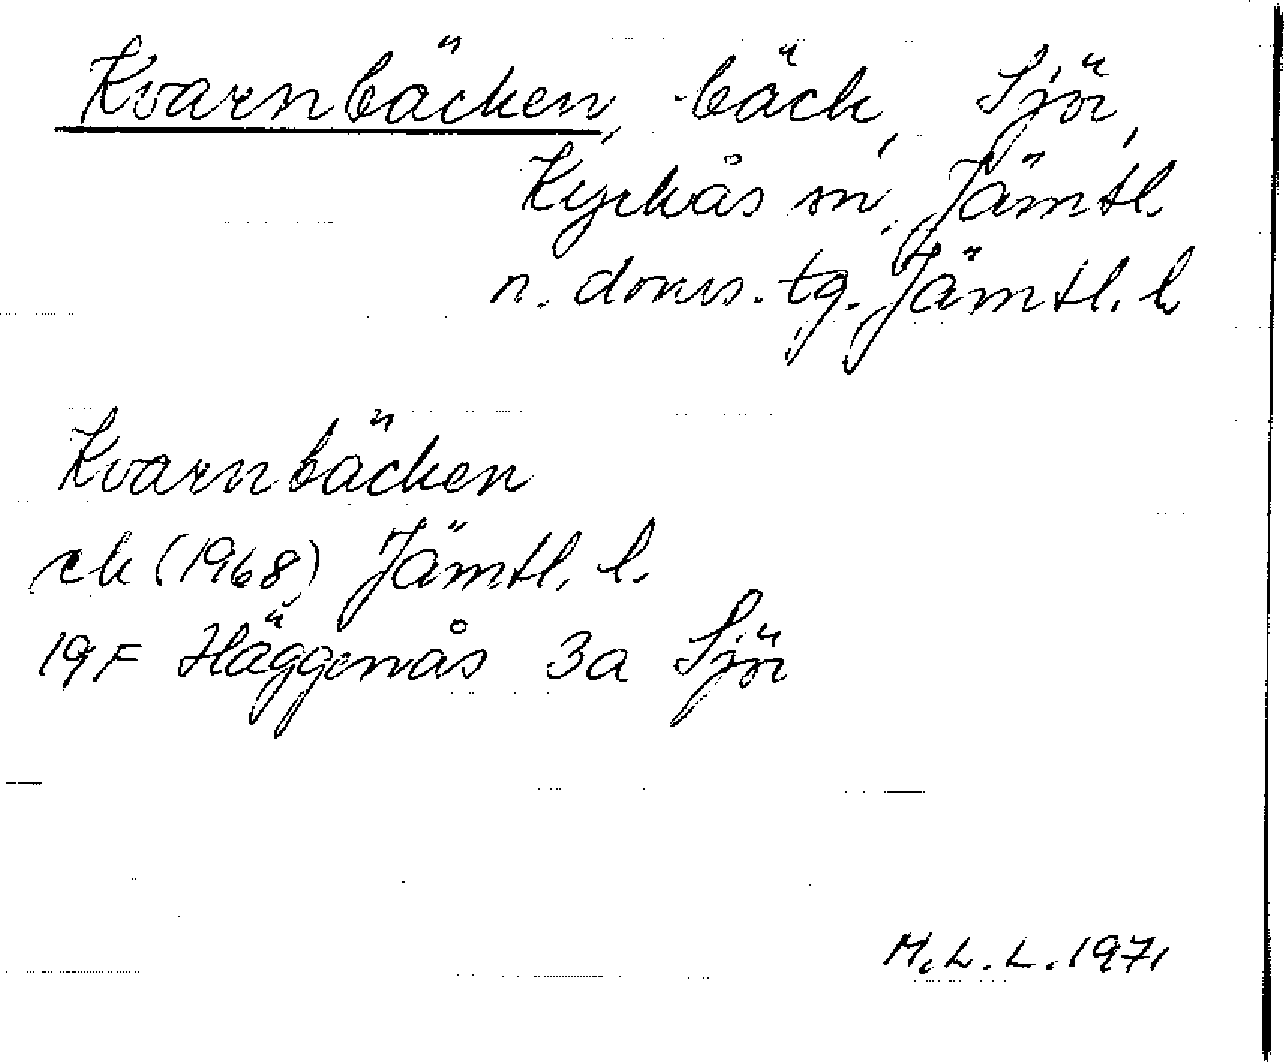 Kvarnbäcken, bäck, Sjör,
Kyrkås sn, Jämtl.
n. doms. tg. Jämtl. l
Kvarnbäcken
ek (1968) Jämtl. l.
19F Häggenås 3a Sjör
M. L. L. 1971